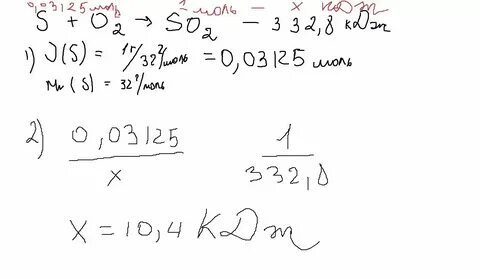 0,03125 моль 1 моль – x кДж
S + O₂ → SO₂ – 332,8 кДж
1) ν(S) = 1г/32г/моль = 0,03125 моль
Mм(S) = 32г/моль
2) 0,03125/x 1/332,8
x = 10,4 кДж